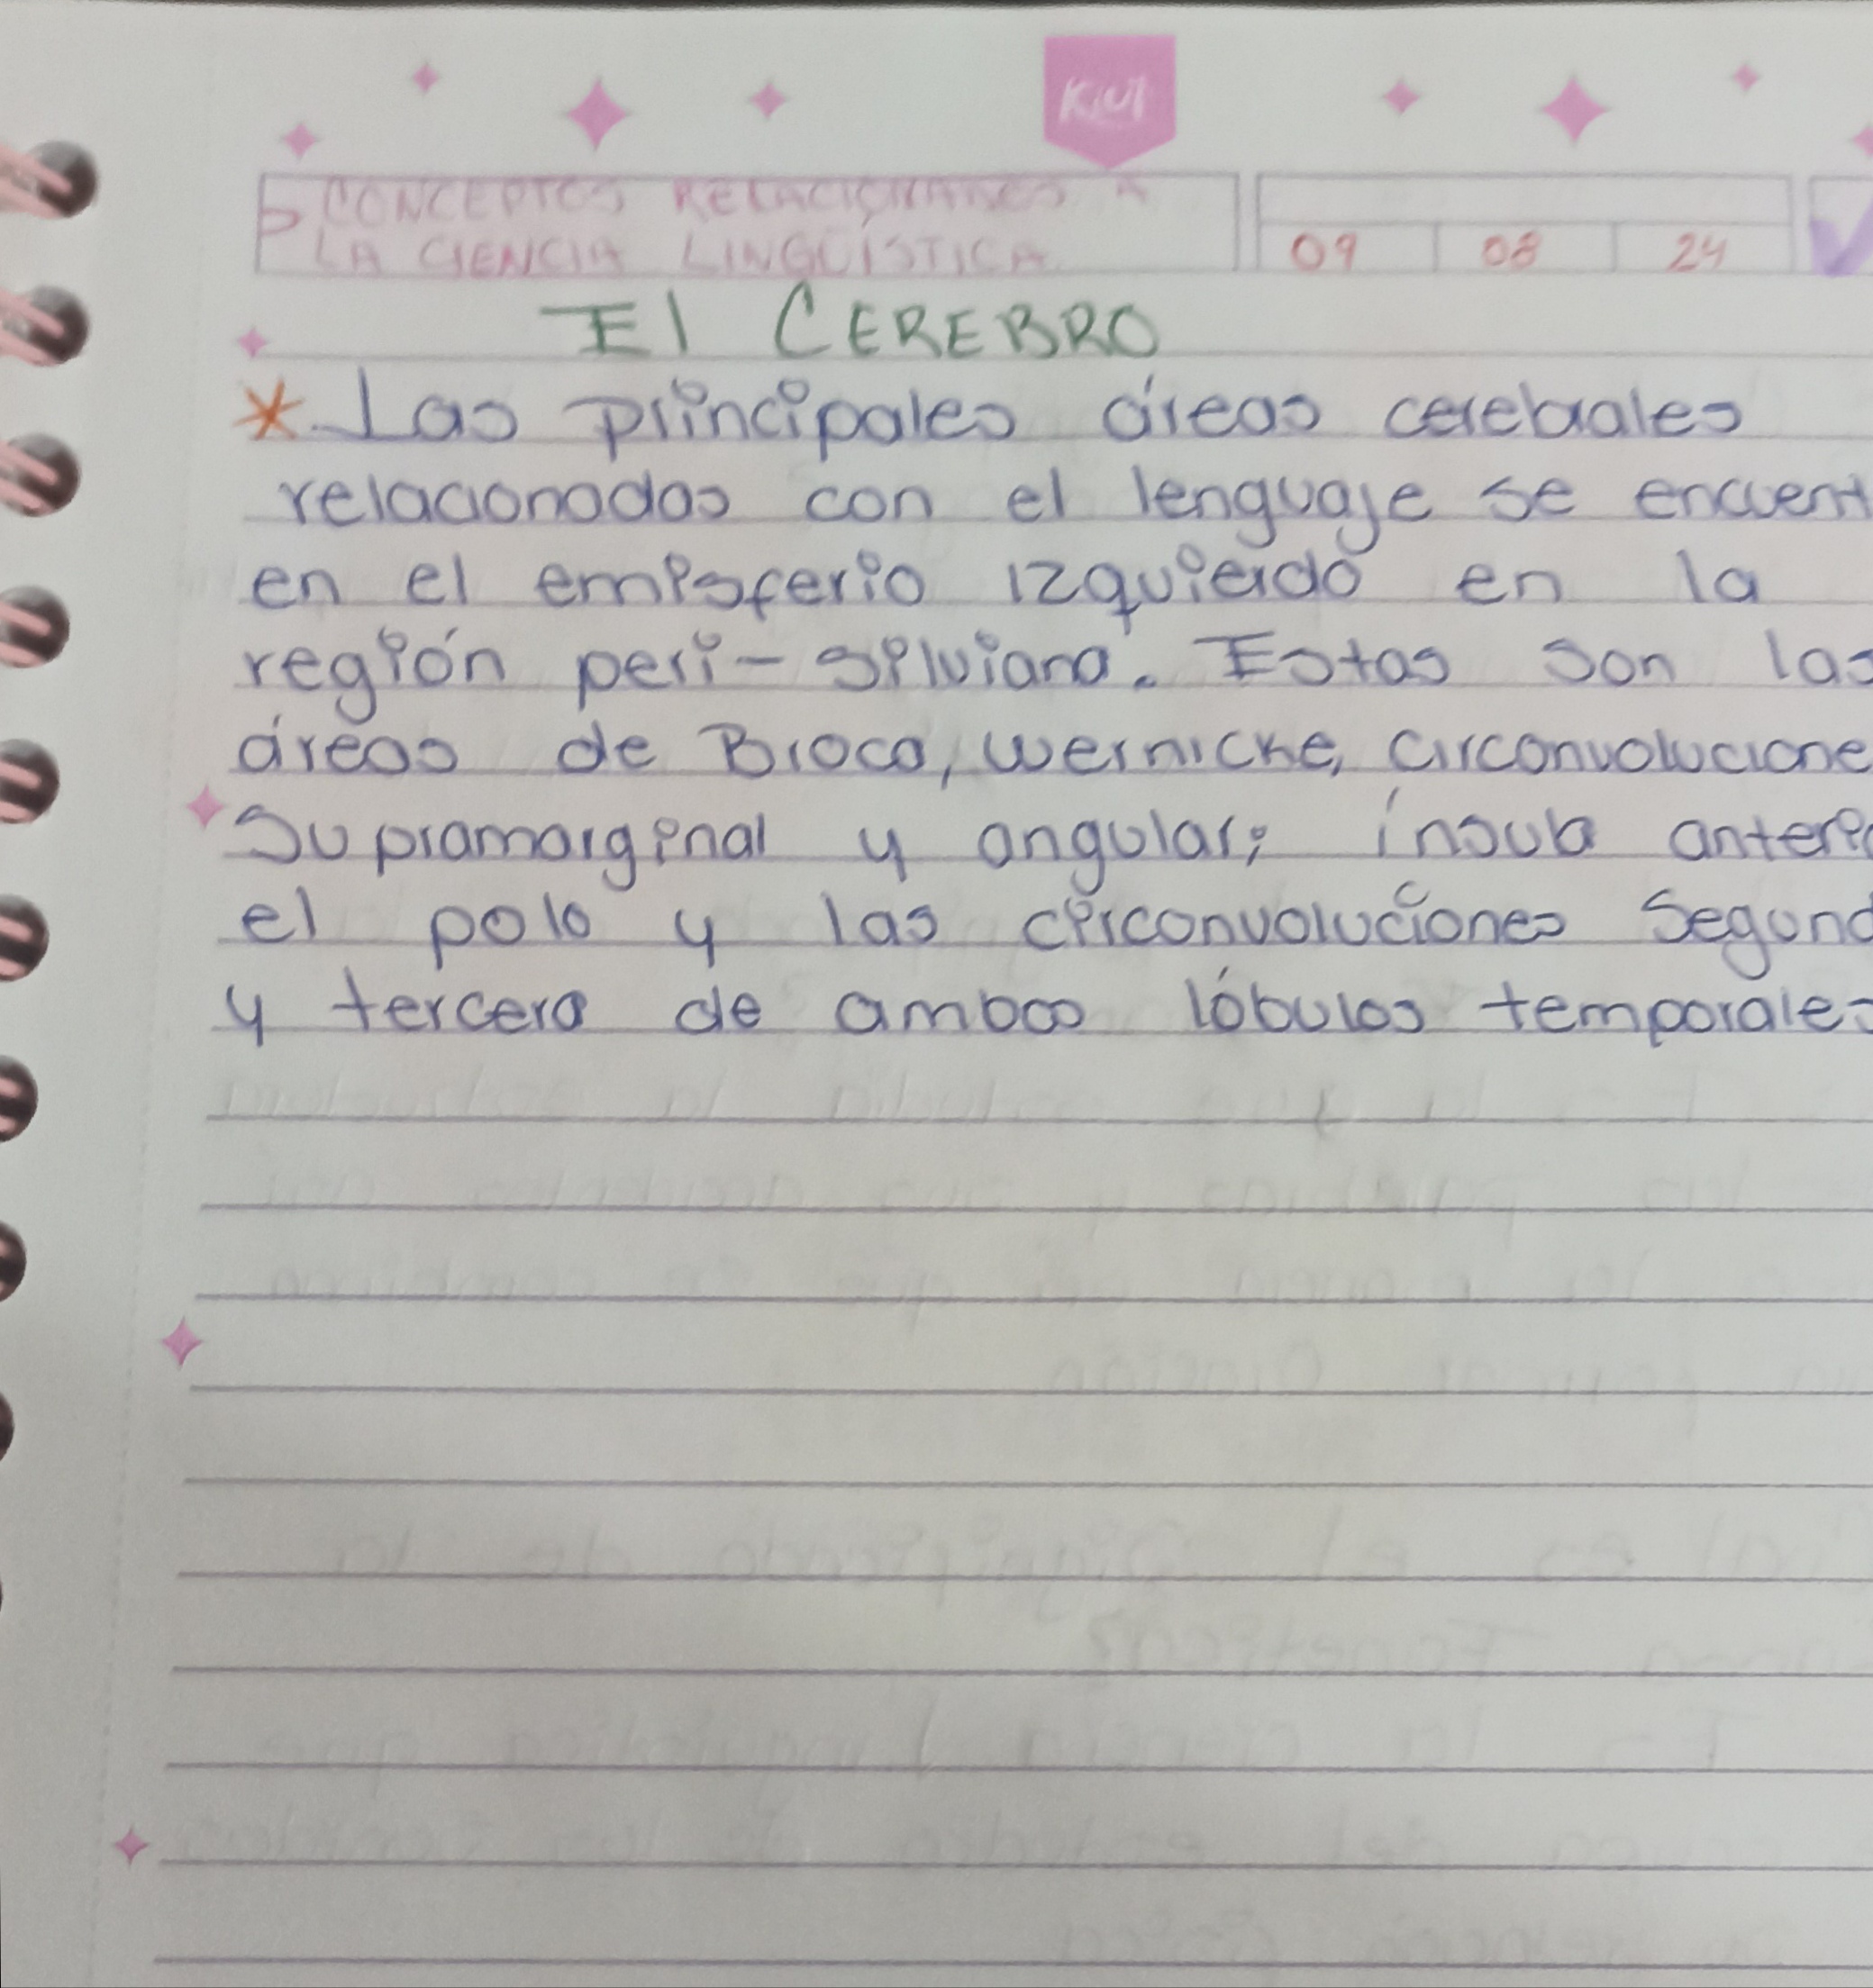 KIUT
CONCEPTOS RELACIONANES A
LA CIENCIA LINGÜÍSTICA
09 08 24
El CEREBRO
* Las principales áreas cerebrales
relacionadas con el lenguaje se encuent
en el emisferio izquierdo en la
región peri-silviana. Estas son las
áreas de Broca, wernicke, circonvolucione
Supramarginal y angular; ínsula anteri
el polo y las circonvoluciones Segund
y tercera de ambos lóbulos temporales